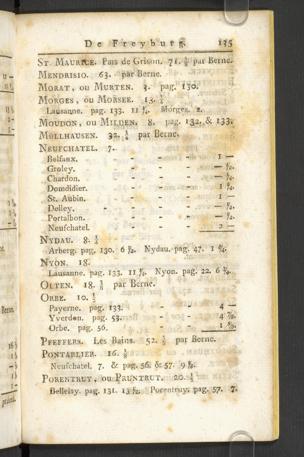 De Freyburg. 135
St. Maurice. Païs de Grison. 71. ½ par Berne.
Mendrisio. 63. par Berne.
Morat, ou Murten. 3. pag. 130.
Morges, ou Morsee. 13.
Lausanne. pag. 133. 11 Morges. 2.
Moudon, ou Milden. 8. pag. 132. & 133.
Mullhausen. 32. par Berne.
Neufchatel. 7.
Belfaux. - - - 1 —
Groley. - - -
Chardon. - - -
Domdidier. - - - 1
St. Aubin. - - - 1 —
Delley. - - -
Portalbon. - - -
Neufchatel. - - - 2 —
Nydau. 8.
Arberg. pag. 130. 6 Nydau. pag. 47. 1
Nyon. 18.
Lausanne. pag. 133. 11 Nyon. pag. 22. 6
Olten. 18. par Berne.
Orbe. 10.
Payerne. pag. 133. - - 4 —
Yverdon. pag. 53. - - 4
Orbe. pag. 56. - - 1
Pfeffers. Les Bains. 52. par Berne.
Pontarlier. 16.
Neufchatel. 7. & pag. 56. & 57. 9
Porentruy, ou Pruntrut. 20.
Bellelay. pag. 131. 13 Porentruy. pag. 57. 7.